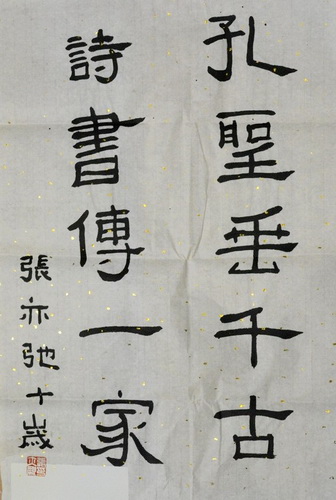 孔聖垂千古
詩書傳一家
張亦弛十歲